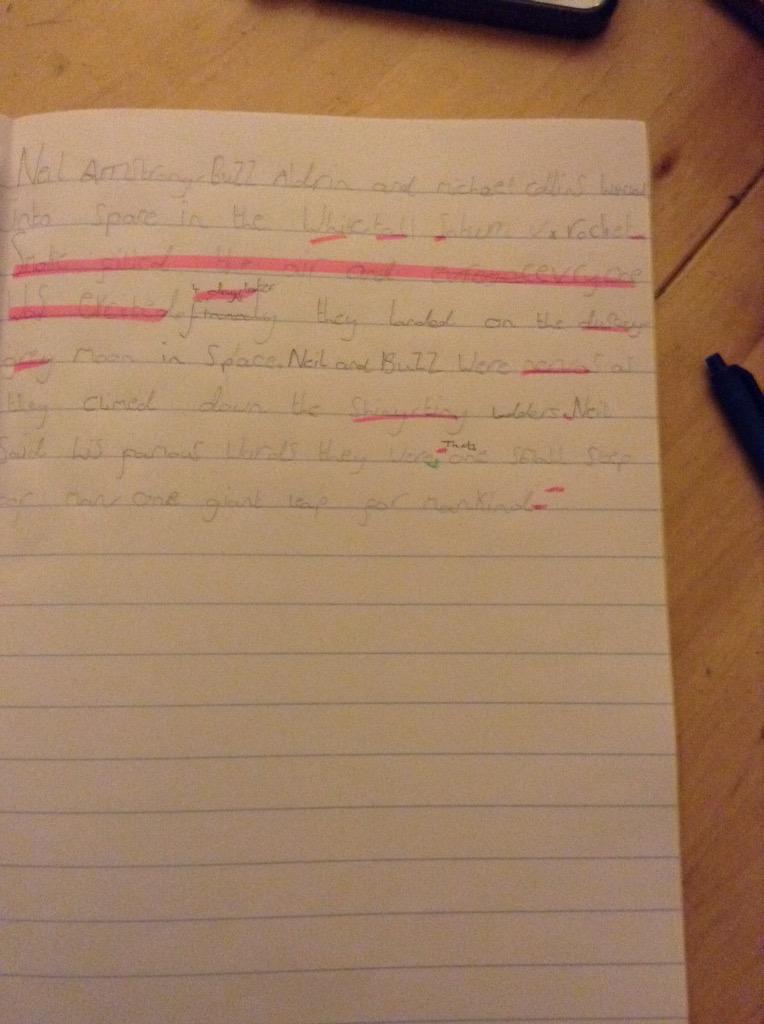 Neil Armstrong, Buzz Aldrin and michael collins
into space in the White tall Saturn v rocket.
Smoke filled the air and everyone
was
4 days later
they landed on the
grey moon in space. Neil and Buzz were at
they climed down the shiny ladders. Neil
Said his famous words they were "
Thats
one small step
for man one giant leap for mankind."